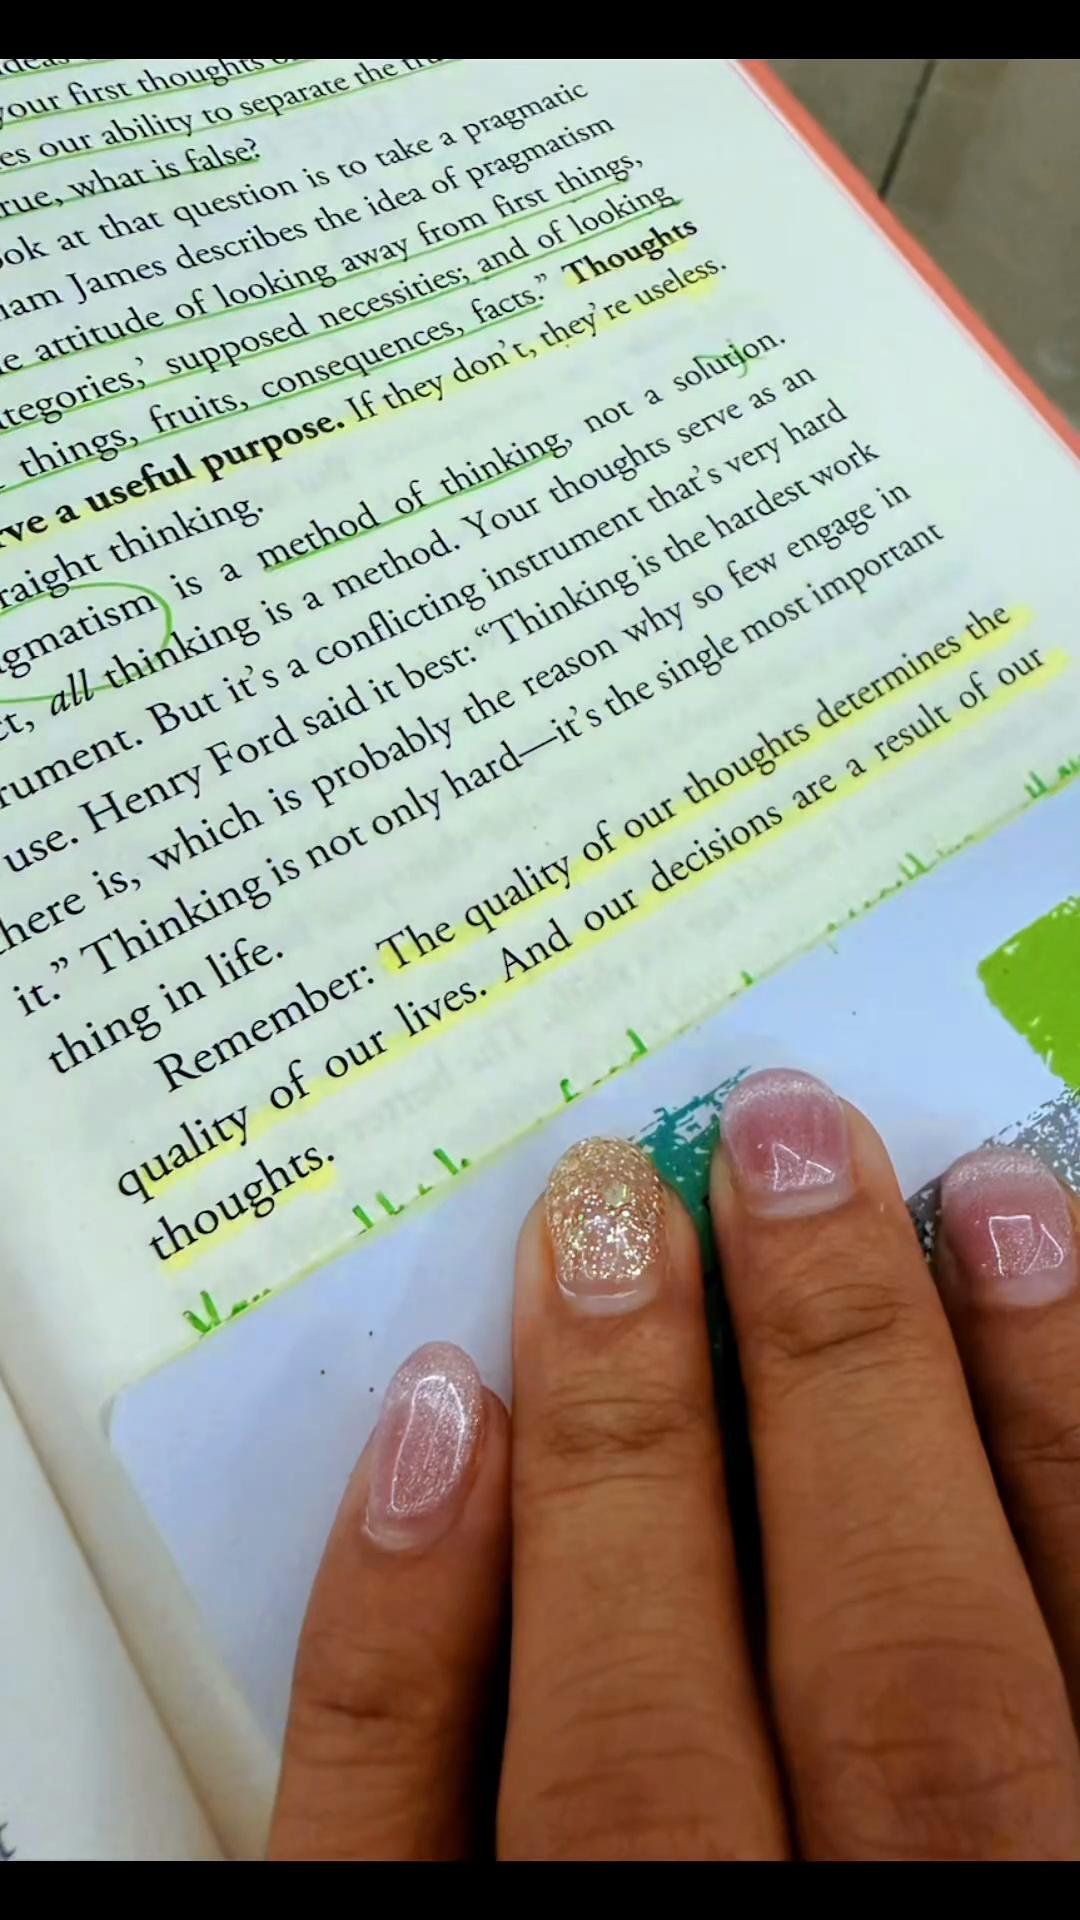 your first thoughts
es our ability to separate the
rue, what is false?
ok at that question is to take a pragmatic
am James describes the idea of pragmatism
e attitude of looking away from first things,
tegories,' supposed necessities; and of looking
things, fruits, consequences, facts." Thoughts
rve a useful purpose. If they don't, they're useless.
raight thinking.
gmatism is a method of thinking, not a solution.
ct, all thinking is a method. Your thoughts serve as an
rument. But it's a conflicting instrument that's very hard
use. Henry Ford said it best: "Thinking is the hardest work
here is, which is probably the reason why so few engage in
it." Thinking is not only hard—it's the single most important
thing in life.
Remember: The quality of our thoughts determines the
quality of our lives. And our decisions are a result of our
thoughts.